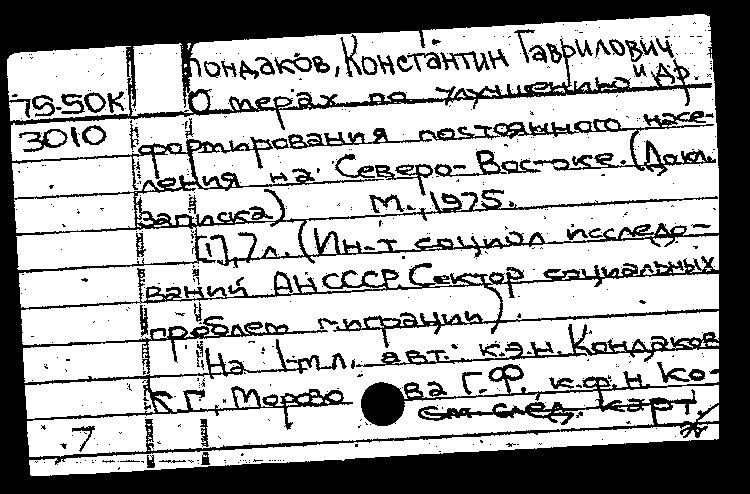 Кондаков, Константин Гаврилович
и др.
75-50К О мерах по улучшению
3010 формирования постоянного насе-
ления на Северо-Востоке. (Докл.
записка) М., 1975.
[1], 7 л. (Ин-т социол исследо-
ваний АН СССР. Сектор социальных
проблем миграции)
На 1-м л. авт.: к.э.н. Кондаков
К.Г., Морово ва Г.Ф. к.ф.н. Ко-
см. след. карт.
7